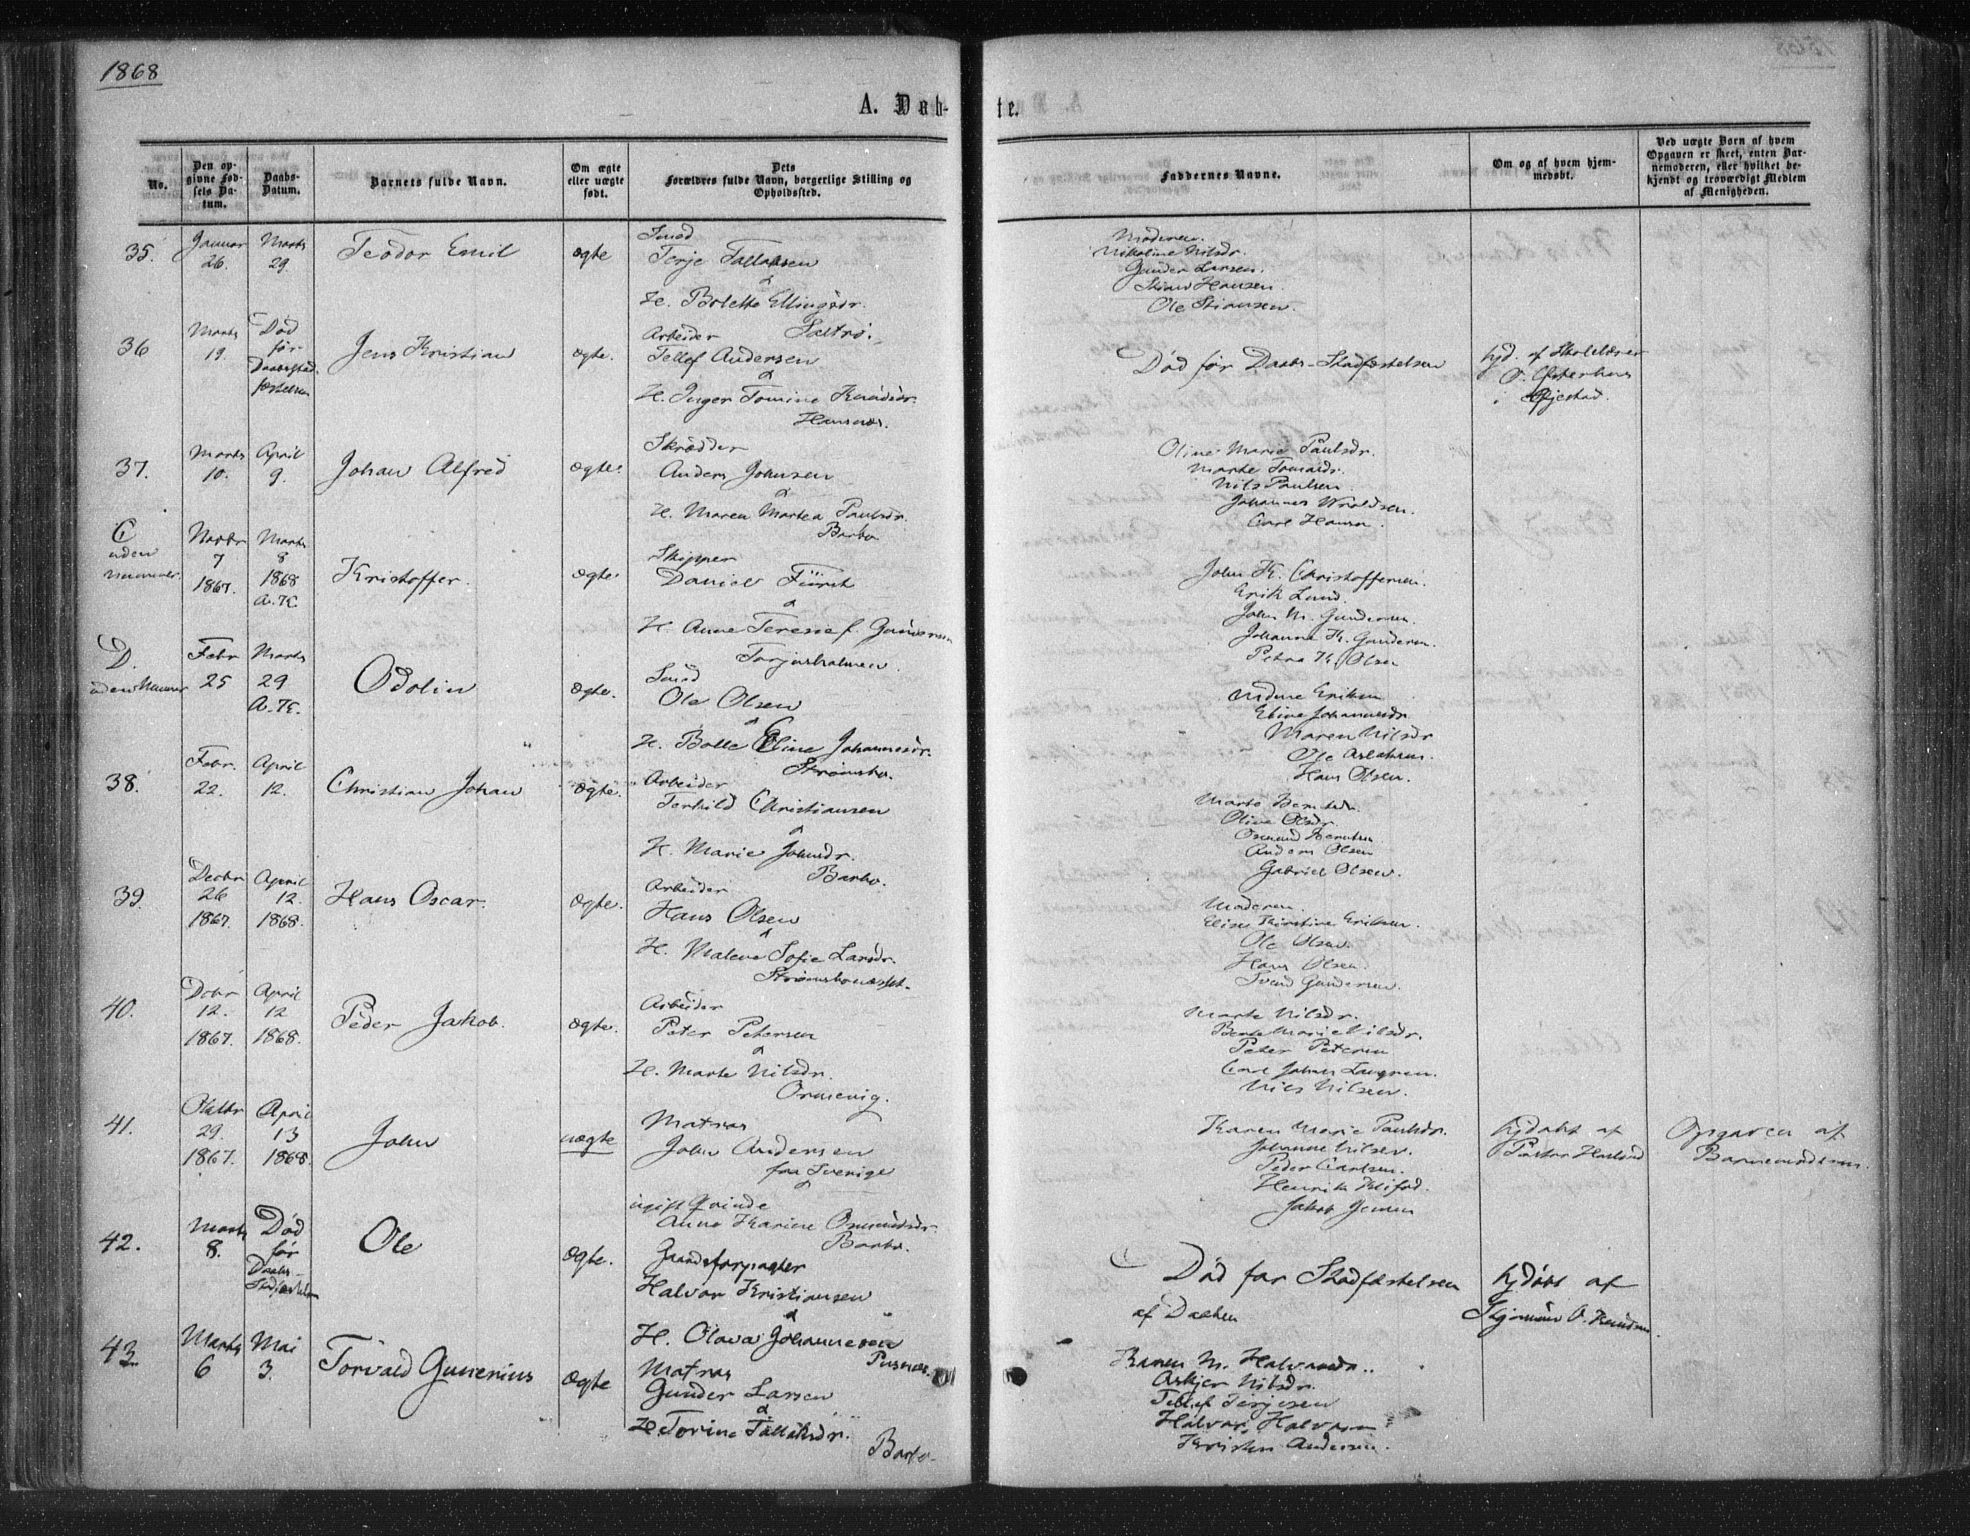 1868
A. Døb-
te.
No.
Den op-
givne Fød-
sels Da-
tum.
Daabs-
Datum.
Barnets fulde Navn.
Om ægte
eller uægte
født.
Dets
Forældres fulde Navn, borgerlige Stilling og
Opholdssted.
Faddernes Navne.
Om og af hvem hjem-
medøbt.
Ved uægte Børn af hvem
Opgaven er skeet, enten Bar-
nemoderen, eller hvilket be-
kjendt og troværdigt Medlem
af Menigheden.
35.
Januar
26.
Marts
29.
Teodor Emil
ægte
Smed
Terje Tallaksen
&
H. Bolette Ellingsdr.
Saltrø.
Moderen.
Nikoline Nilsdr.
Gunder Larsen.
Stian Hansen.
Ole Stiansen.
36
Marts
19.
Død
før
Daabsstad-
fæstelsen
Jens Kristian
ægte.
Arbeider
Tellef Andersen
&
H. Inger Tomine Knudsdr.
Hansnæs.
Død før Daabs-Stadfæstelsen
hjd. af Skolelærer
O. Østerhus
i Øjestad.
37.
Marts
10.
April
9.
Johan Alfred
ægte.
Skrædder
Anders Johnsen
&
H. Maren Martea Paulsdr.
Barbo
Oline Marie Paulsdr.
Marte Tomasdr.
Nils Paulsen.
Johannes Wroldsen.
Carl Hansen.
C
uden
nummer.
Novbr
7
1867.
Marts
8
1868
A.K.
Kristoffer.
ægte.
Skipper
Daniel Fürst
&
H. Anne Terese f. Gundersen
Torjusholmen.
John K. Christoffersen.
Erik Lund.
John M. Gundersen.
Johanne K. Gundersen.
Petra K. Olsen
D.
uden Nummer
Febr
25
Marts
29
A.K.
Odolin
ægte.
Smed
Ole Olsen
&
H. Bolle Eline Johannesdr.
Strømsbo.
Eline Johannesdr
Maren Nilsdr
Ole Aslaksen.
Hans Olsen.
38.
Febr.
22.
April
12.
Christian Johan
ægte.
Arbeider
Terkild Christiansen
&
H. Marie Johnsdr.
Barbo.
Marte Berntsdr.
Oline Olsdr.
Osmund Berntsen
Anders Olsen
Gabriel Olsen.
39.
Decbr
26
1867.
April
12.
1868.
Hans Oscar.
ægte.
Arbeider
Hans Olsen
&
H. Malene Sofie Larsdr.
Strømsbonæsset.
Moderen.
Elise Kirstine Eriksen.
Ole Olsen.
Hans Olsen.
Svend Gundersen.
40.
Dcbr
12.
1867.
April
12
1868.
Peder Jakob.
ægte.
Arbeider
Peter Petersen
&
H. Marte Nilsdr.
Ormevig.
Marte Nilsdr.
Berte Marie Nilsdr.
Peter Petersen
Carl Johan Laugesen.
Nils Nilsen.
41.
Oktbr
29.
1867.
April
13
1868.
John
uægte
Matros
John Andersen
fra Sverige
&
ugift Qvinde
Anne Karine Osmundsdr
Barbo.
Karen Marie Paulsdr.
Johanne Nilsen.
Peder Carlsen.
Henrik
Jakob Jensen
hjdøbt af
Pastor Hasland
Opgaven af
Barnemoderen.
42.
Marts
8.
Død
før
Daabs-
Stadfæstelsen
Ole
ægte.
Gaardsforpagter
Halvor Kristiansen
&
H. Olava Johannesen
Pusnæs
Død før Stadfæstelsen
af Daaben
hjdøbt af
O. Knudsen.
43.
Marts
6
Mai
3.
Torvald Gunerius
ægte
Matros
Gunder Larsen
&
H. Torine Tallaksdr.
Barbo.
Karen M. Halvorsdr.
Asbjør Nilsdr.
Tellef Terjesen
Halvor Halvorsen
Kristen Andersen.